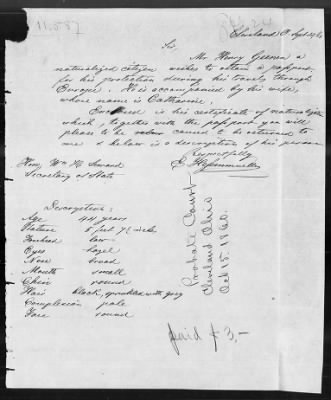 11.557
Cleveland O. Sept 24/60
Sir,
Mr. Henry a
naturalized citizen wishes to obtain a passport
for his protection during his travels through
Europe. He is accompanied by his wife,
whose name is Catharine.
Enclosed is his certificate of naturalization
which, together with the passport you will
please to be caused to be returned to
me & below is a description of his person
Respectfully
E.
Hon. Wm H Seward
Secretary of State
Description:
Age 44 years
Stature 5 feet 7 1/2 inches
Forehead low
Eyes hazel
Nose broad
Mouth small
Chin round
Hair black, sprinkled with gray
Complexion pale
Face round
Probate Court
Cleveland Ohio
Oct 5. 186
paid $ 3,-